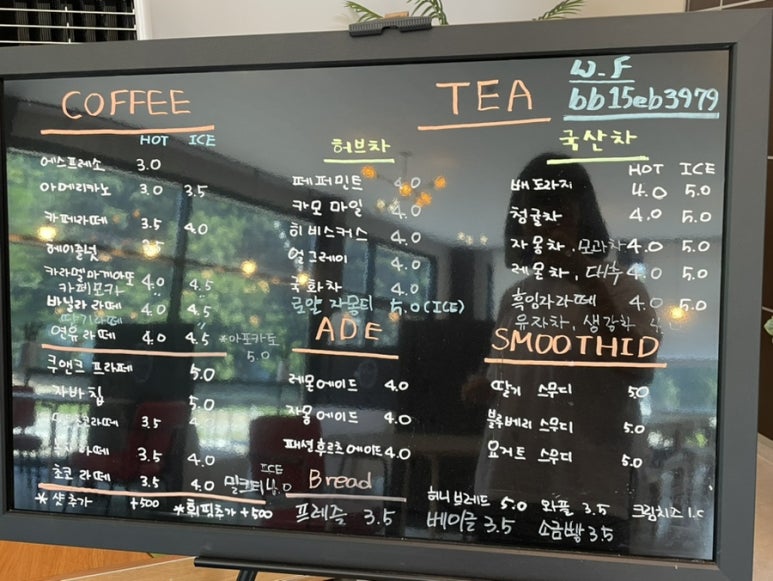 COFFEE
HOT ICE
에스프레소 3.0
아메리카노 3.0 3.5
카페라떼 3.5 4.0
헤이즐넛
카라멜마끼아또 4.0 4.5
카페모카
바닐라 라떼 4.0 4.5
딸기라떼
연유라떼 4.0 4.5
*아포카토 5.0
쿠앤크 프라페 5.0
자바칩 5.0
3.5 4.0
라떼 3.5 4.0
초코 라떼 3.5 4.0
ICE
밀크티
*샷추가 +500
*휘핑추가 +500
TEA
W.F
bb15eb3979
허브차
페퍼민트 4.0
카모마일 4.0
히비스커스 4.0
얼그레이 4.0
국화차 4.0
로얄 자몽티 5.0(ICE)
국산차
HOT ICE
배도라지 4.0 5.0
청귤차 4.0 5.0
자몽차, 모과차 4.0 5.0
레몬차, 대추 4.0 5.0
흑임자라떼 4.0 5.0
유자차, 생강차
ADE
레몬에이드 4.0
자몽에이드 4.0
패션후르츠에이드 4.0
SMOOTHID
딸기 스무디 5.0
블루베리 스무디 5.0
요거트 스무디 5.0
Bread
프레즐 3.5
허니브레드 5.0 와플 3.5 크림치즈
베이글 3.5 소금빵 3.5